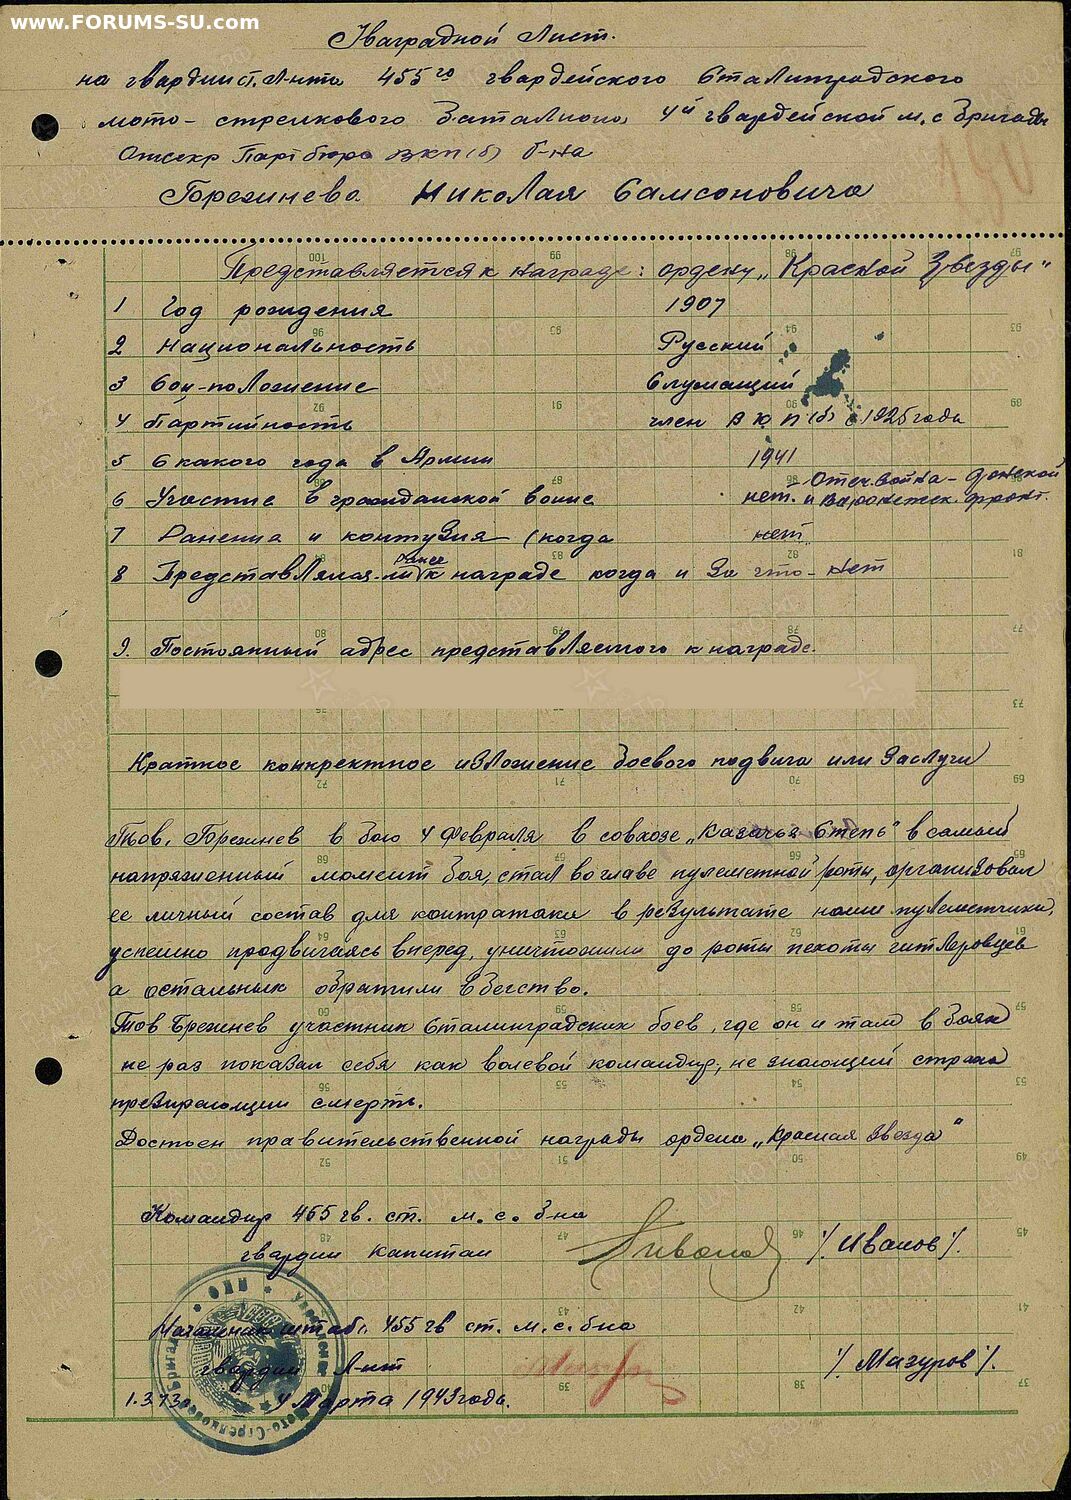 www.FORUMS-SU.com
Наградной Лист.
на гвардии ст. Л-нта 455го гвардейского Сталинградского
мото-стрелкового Баталиона, 4й гвардейской м.с Бригады
Отсекр Партбюро ВКП(б) б-на
Николая Самсоновича
Представляется к награде: ордену „Красной Звезды"
1 Год рождения 1907
2 Национальность Русский
3 Соц-положение Служащий
4 Партийность член ВКП(б) с 1925 года
5 С какого года в Армии 1941
6 Участие в гражданской войне нет. Отеч. война - Донской и Воронежск. фронт.
7 Ранения и контузия (когда нет
8 Представлялся-ли ранее к награде когда и За что - Нет
9. Постоянный адрес представляемого к награде.
Краткое конкретное изложение боевого подвига или Заслуги
Тов. в бою 4 февраля в совхозе „Казачья Степь" в самый
напряженный момент боя, стал во главе пулеметной роты, организовал
ее личный состав для контратаки в результате наши пулеметчики,
успешно продвигаясь вперед, уничтожили до роты пехоты гитлеровцев
а остальных обратили в бегство.
Тов участник Сталинградских боев, где он и там в боях
не раз показал себя как волевой командир, не знающий страха
презирающий смерть.
Достоен правительственной награды ордена „Красная Звезда"
Командир 455 гв. ст. м. с. б-на
гвардии капитан /Иванов/.
Начальник штаба 455 гв ст. м. с. б-на
гвардии Л-нт /Мазуров/.
4 Марта 1943 года.